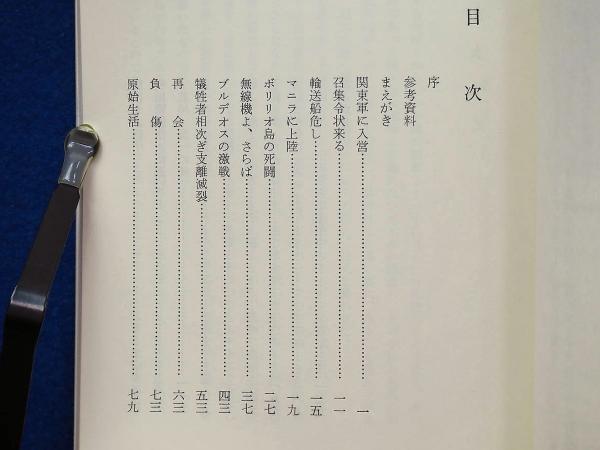 目次
序
参考資料
まえがき
関東軍に入営……………………一
召集令状来る……………………一一
輸送船危し……………………一五
マニラに上陸……………………一九
ポリリオ島の死闘……………………二七
無線機よ、さらば……………………三七
ブルデオスの激戦……………………四三
犠牲者相次ぎ支離滅裂……………………五三
再会……………………六三
負傷……………………七三
原始生活……………………七九